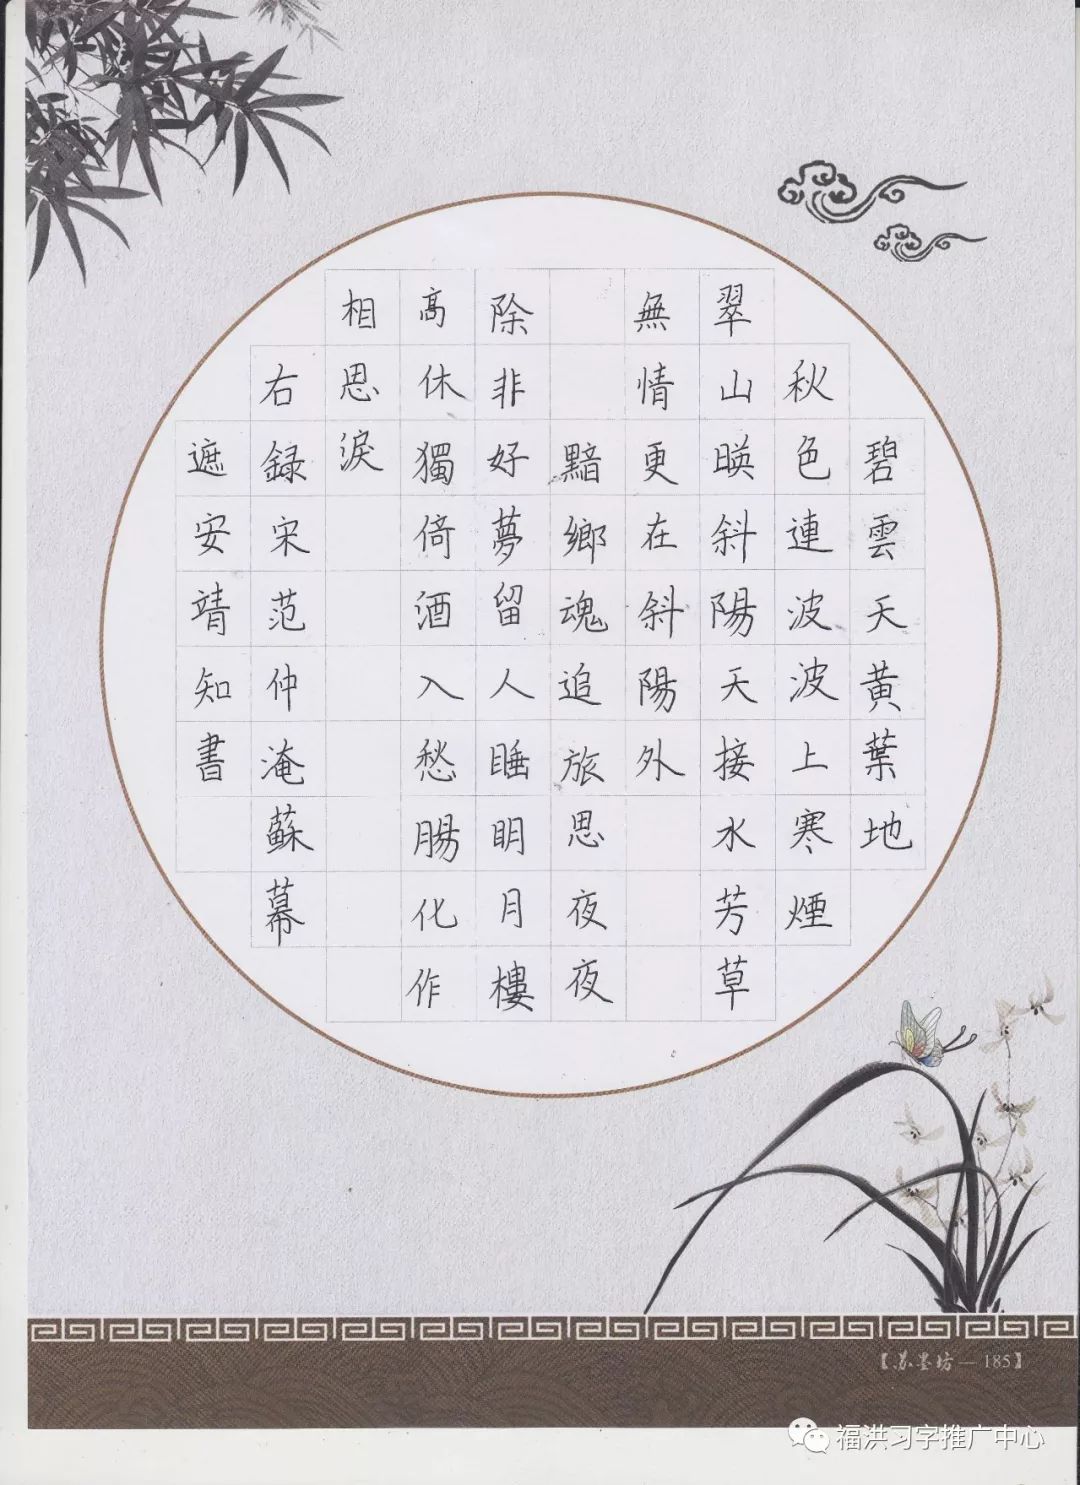 碧雲天黄葉地
秋色連波波上寒煙
翠山暎斜陽天接水芳草
無情更在斜陽外
黯鄉魂追旅思夜夜
除非好夢留人睡明月樓
高休獨倚酒入愁腸化作
相思淚
右録宋范仲淹蘇幕
遮安靖知書
【苏墨坊—185】
福洪习字推广中心